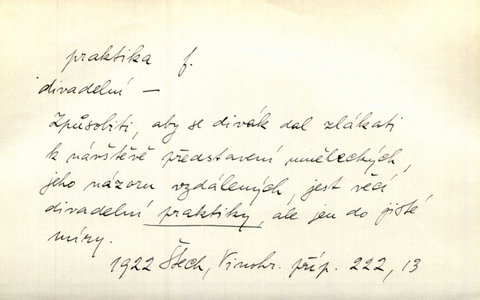 praktika f.
divadelní —
Způsobiti, aby se divák dal zlákati
k návštěvě představení uměleckých,
jeho názoru vzdálených, jest věcí
divadelní praktiky, ale jen do jisté
míry.
1922 Štech, Vinohr. příp. 222, 13